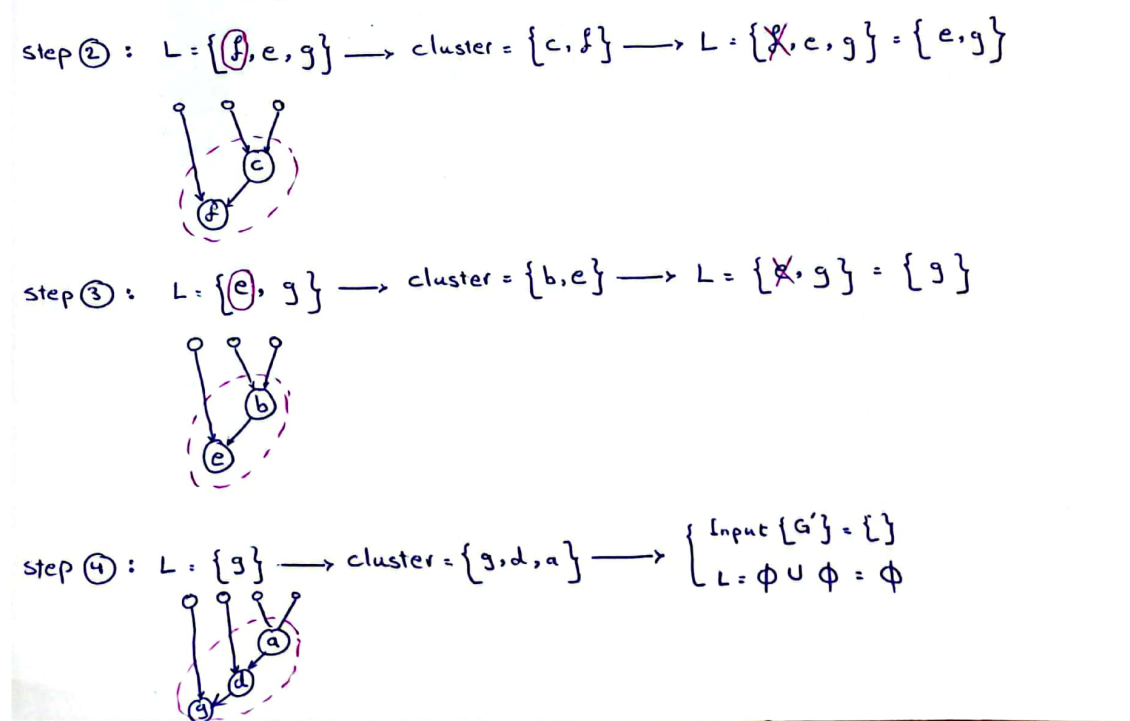 step ② : L = {f, e, g} → cluster = {c, f} → L = {f, e, g} = {e, g}
c
f
step ③ : L = {e, g} → cluster = {b, e} → L = {e, g} = {g}
b
e
step ④ : L = {g} → cluster = {g, d, a} → { Input {G'} = {}
L = ϕ ∪ ϕ = ϕ
a
d
g